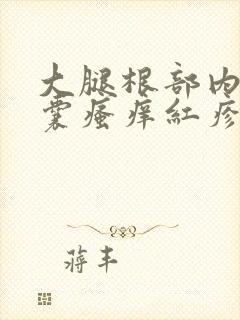 大腿根部内
囊瘙痒红疹
蒋丰